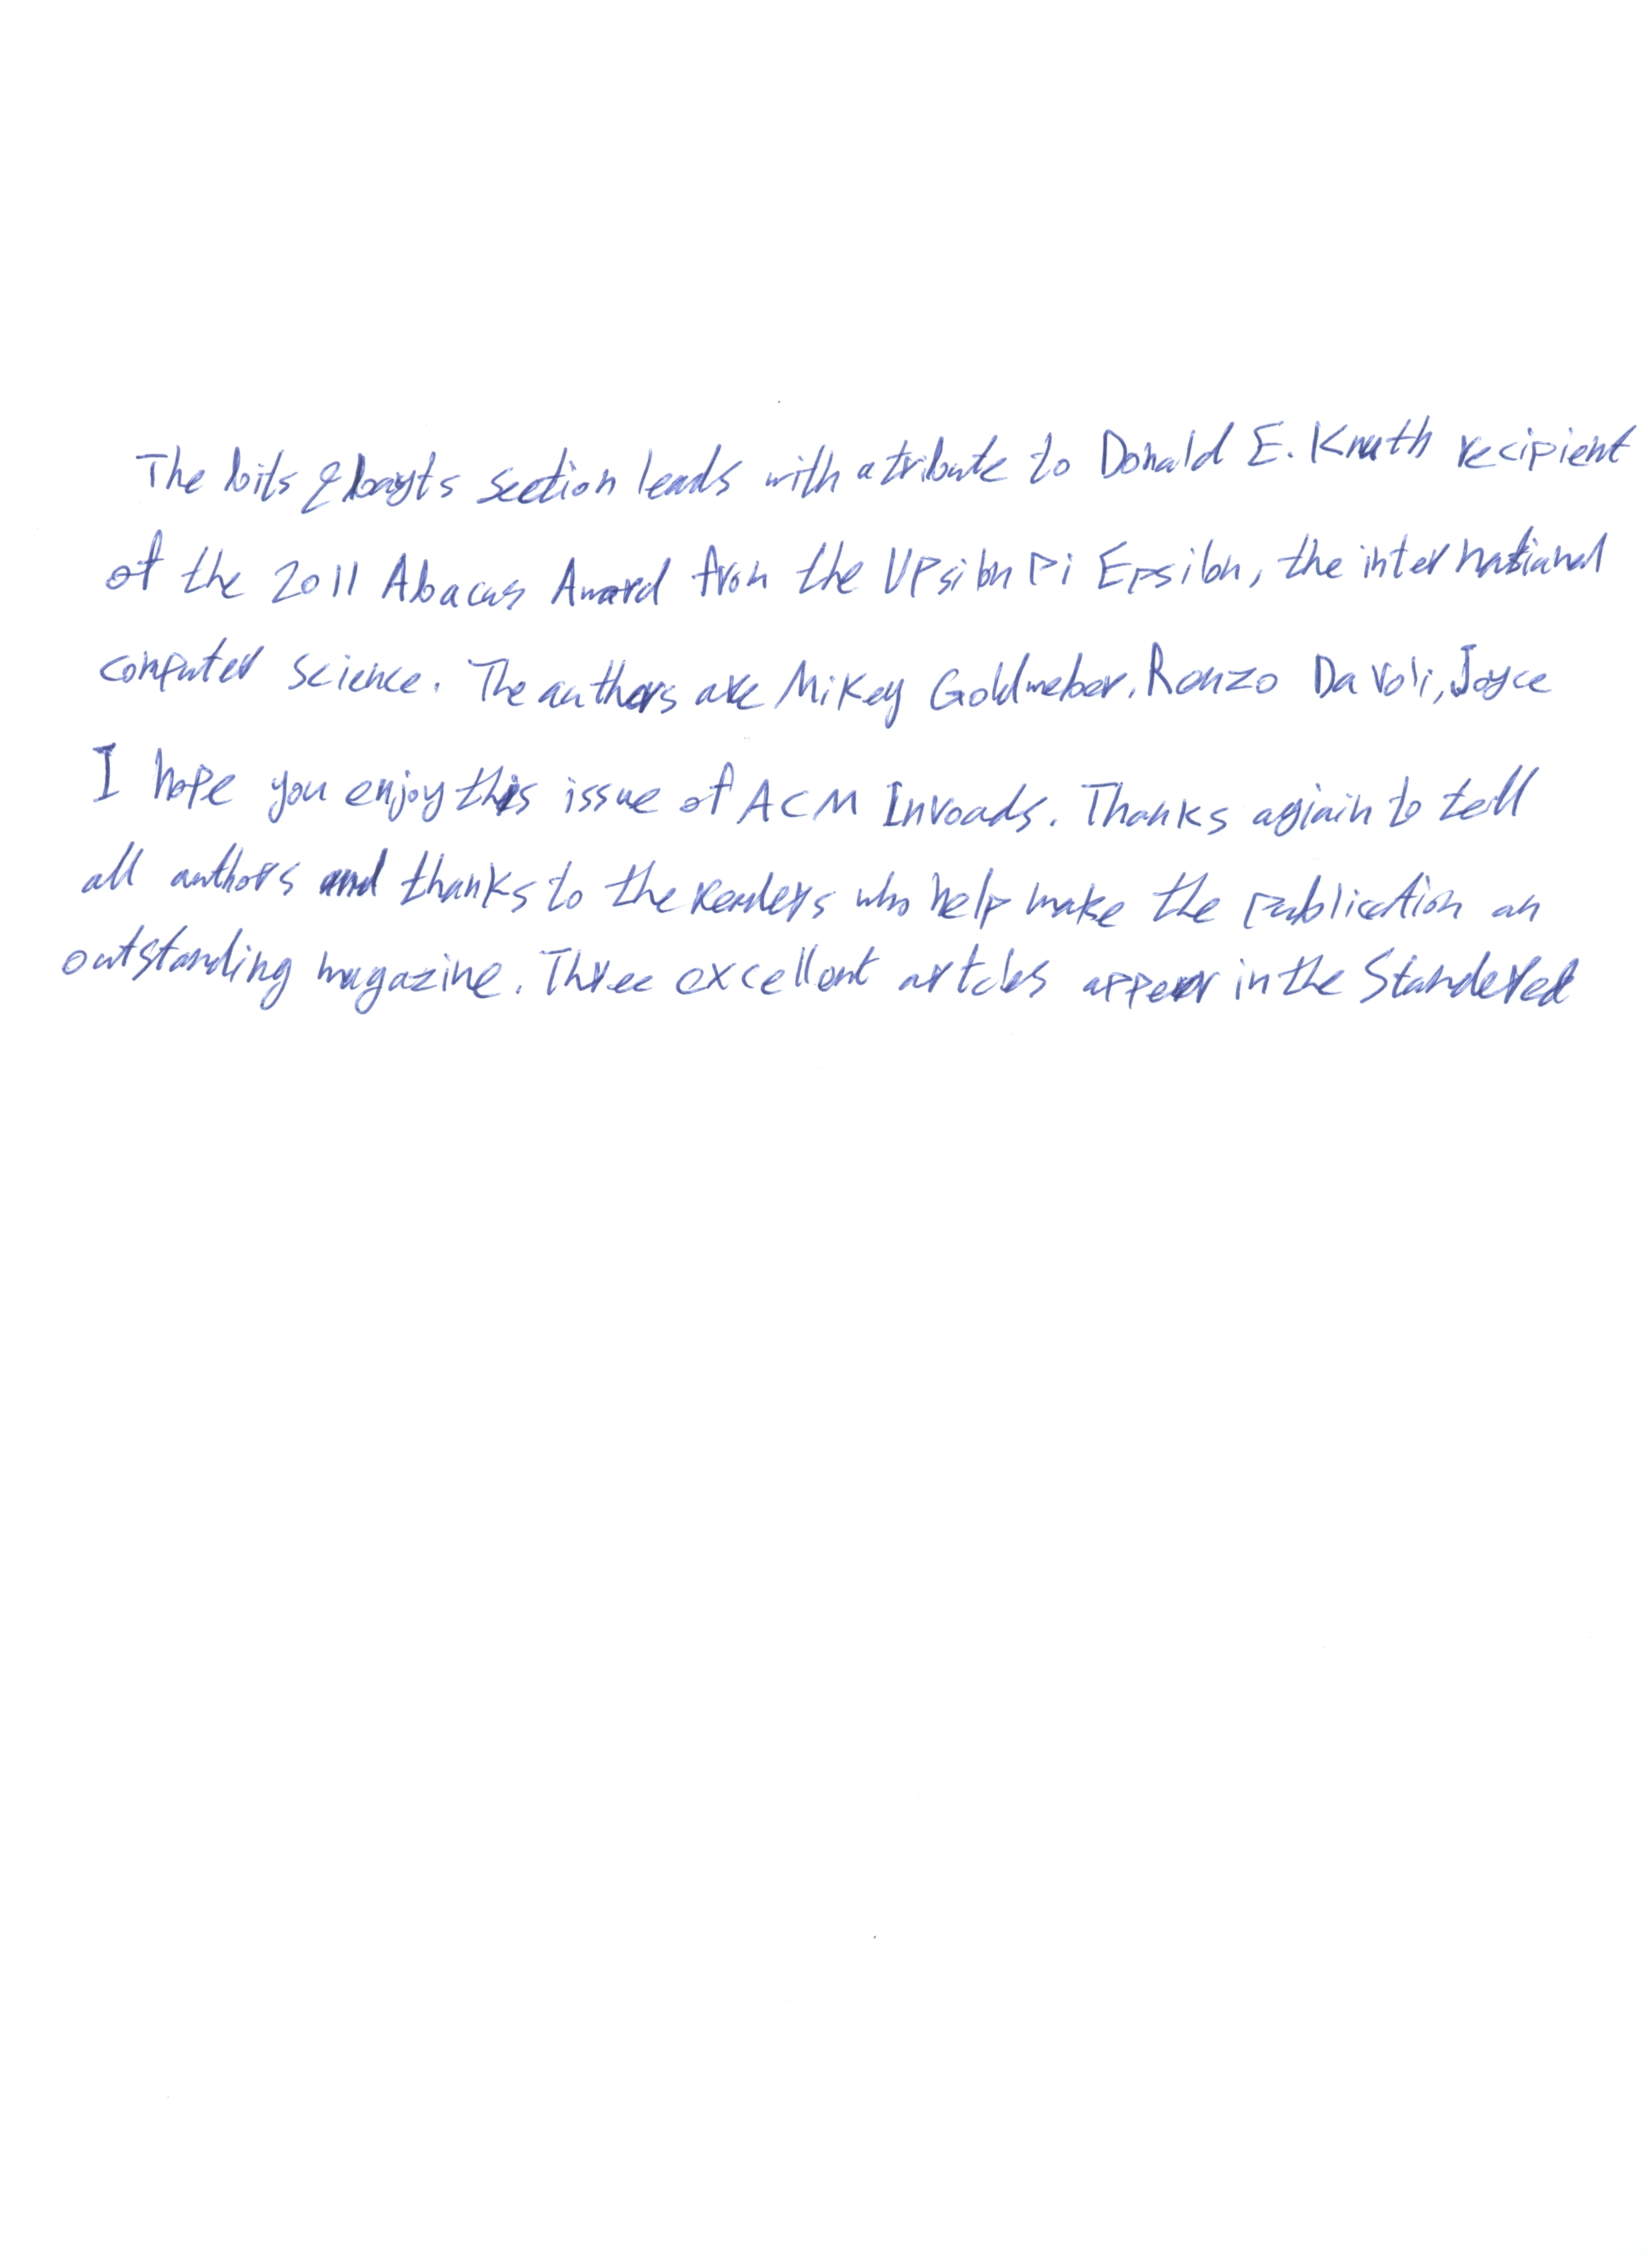 The bits & bayts section leads with a tribute to Donald E. Knuth recipient
of the 2011 Abacus Award fron the Upsilon Pi Epsilon, the international
computer science. The authors are Mikey Goldweber, Renzo Davoli, Joyce
I hope you enjoy this issue of ACM Inroads. Thanks agiain to tell
all authors and thanks to the readers who help make the publication an
outstanding magazine. Three excellent artcles appear in the Standered